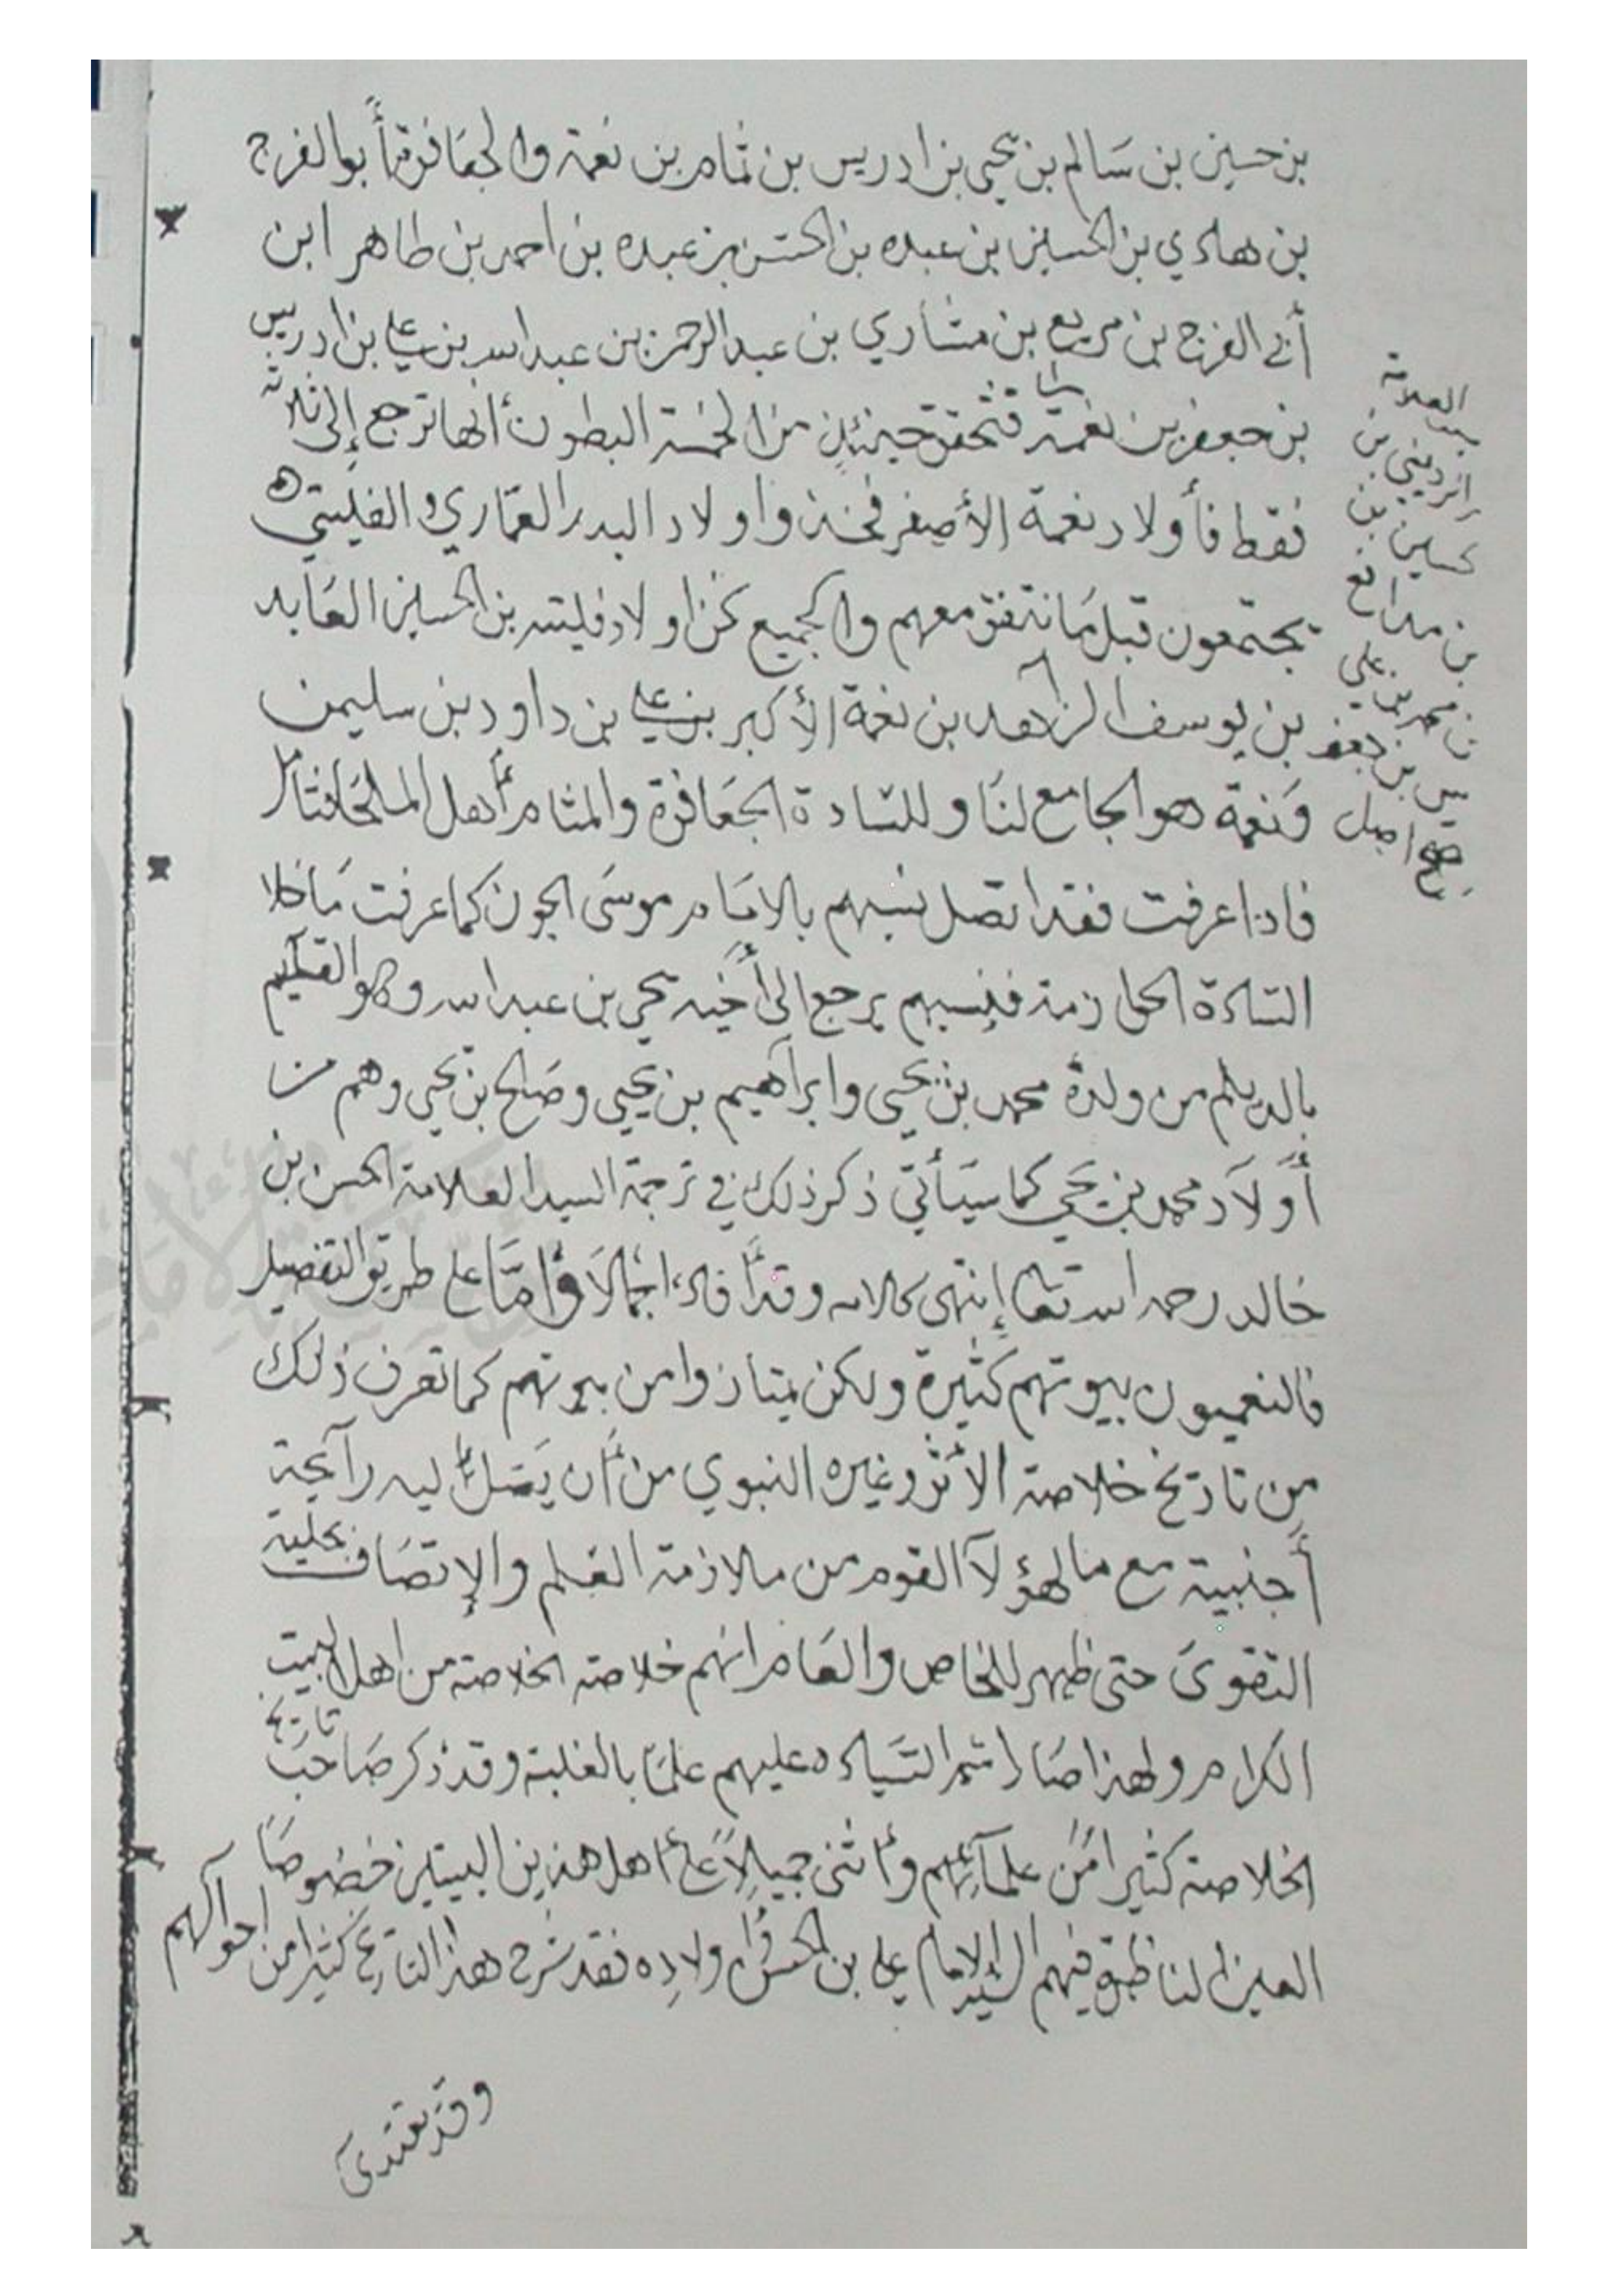 بن حسين بن سَالم بن يحيى بن ادريس بن ثمامر بن نعمة والجعَافرة أبوالفرج
بن هادي بن الحسين بن عبده بن الحسن بن عبده بن احمد بن طاهر ابن
أبي الفرج بن مريع بن مشاري بن عبدالرحمن بن عبدالله بن علي بن ادريس
بن جعفر بن نعمة فتحقق حينئذٍ من الخمسة البطون أنها ترجع إلى ثلاثة
فقط فأولاد نعمة الأصغر فخذ واولاد البدر العمّاري والفليتي
يجتمعون قبل مَا نتفق معهم والجميع نحن اولاد فليته بن الحسين العَابد
بن يوسف الزاهد بن نعمة الأكبر بن علي بن داود بن سليمن
ونعمة هو الجامع لنَا وللسَّادة الجعَافرة والمثامر أهل الملحَا
فاذا عرفت فقد اتصل نسبهم بالامَام موسَى الجون كما عرفت مَاخلا
السَّادة الحوازمة فنسبهم يرجع الى أخيه يحي بن عبدالله وهو القائم
بالديلم من ولده محمد بن يحيى وابراهيم بن يحيى وصَالح بن يحي وهم من
أولاد محمد بن يحي كما سيَأتي ذكر ذلك في ترجمة السيد العلامة الحسن بن
خالد رحمه الله تعالى إنتهى كلامه وقد أفاد اجمالاً وأمَّا على طريق التفصيل
فالنعميون بيوتهم كثيرة ولكن يمتازوا من بيوتهم كما تعرف ذلك
من تاريخ خلاصة الأثر وغيره النبوي من أن يصَل إليه رآئحة
أجنبية مع ما لهؤلآ القوم من ملازمة العلم والإتصَاف بحلية
التقوىَ حتى ظهر للخاص والعَام انهم خلاصة الخلاصة من اهل البيت
الكرام ولهذا صَار اسم السّيَاده عليهم علمًا بالغلبة وقد ذكر صَاحب تاريخ
الخلاصة كثيرا مِّن علمآئهم وأثنى جميلاً على اهل هذين البيتين خصُوصًا
المعين لناظمه فيهم السيد الامام علي بن الحسن واولاده فقد شرح هذا التاريخ كثيرا من احوالهم
العلامة
بن
حسين بن
بن علي
صح اصل